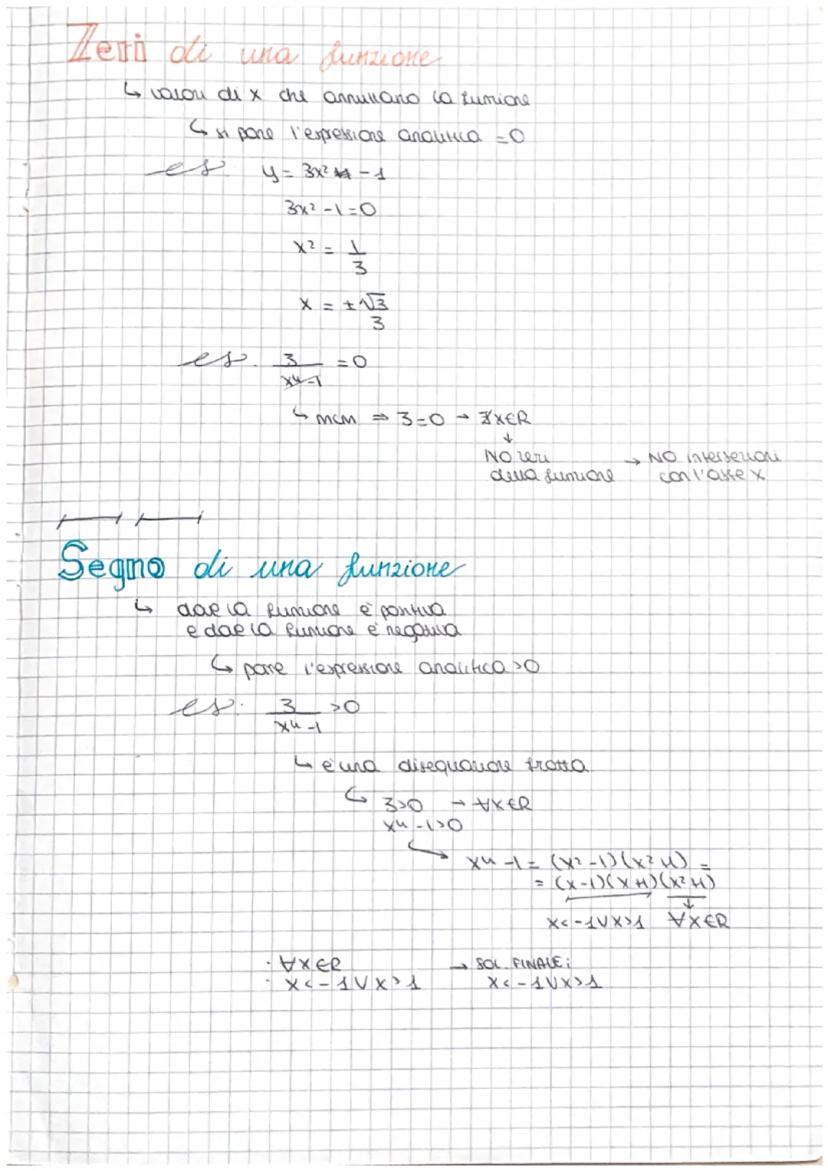 Zeri di una funzione
↳ valori di x che annullano la funzione
↳ si pone l'espressione analitica =0
es y = 3x² - 1
3x² - 1 = 0
x² = 1/3
x = ±√3/3
es. 3/(x⁴-1) = 0
↳ mcm ⇒ 3=0 → ∄x∈R
↓
NO zeri → NO intersezioni
della funzione con l'asse x
Segno di una funzione
↳ dove la funzione è positiva
e dove la funzione è negativa
↳ porre l'espressione analitica >0
es: 3/(x⁴-1) >0
↳ è una disequazione fratta
↳ 3>0 → ∀x∈R
x⁴-1>0
x⁴-1 = (x²-1)(x²+1) =
= (x-1)(x+1)(x²+1)
x<-1∨x>1 ∀x∈R
· ∀x∈R → SOL. FINALE:
· x<-1∨x>1 x<-1∨x>1